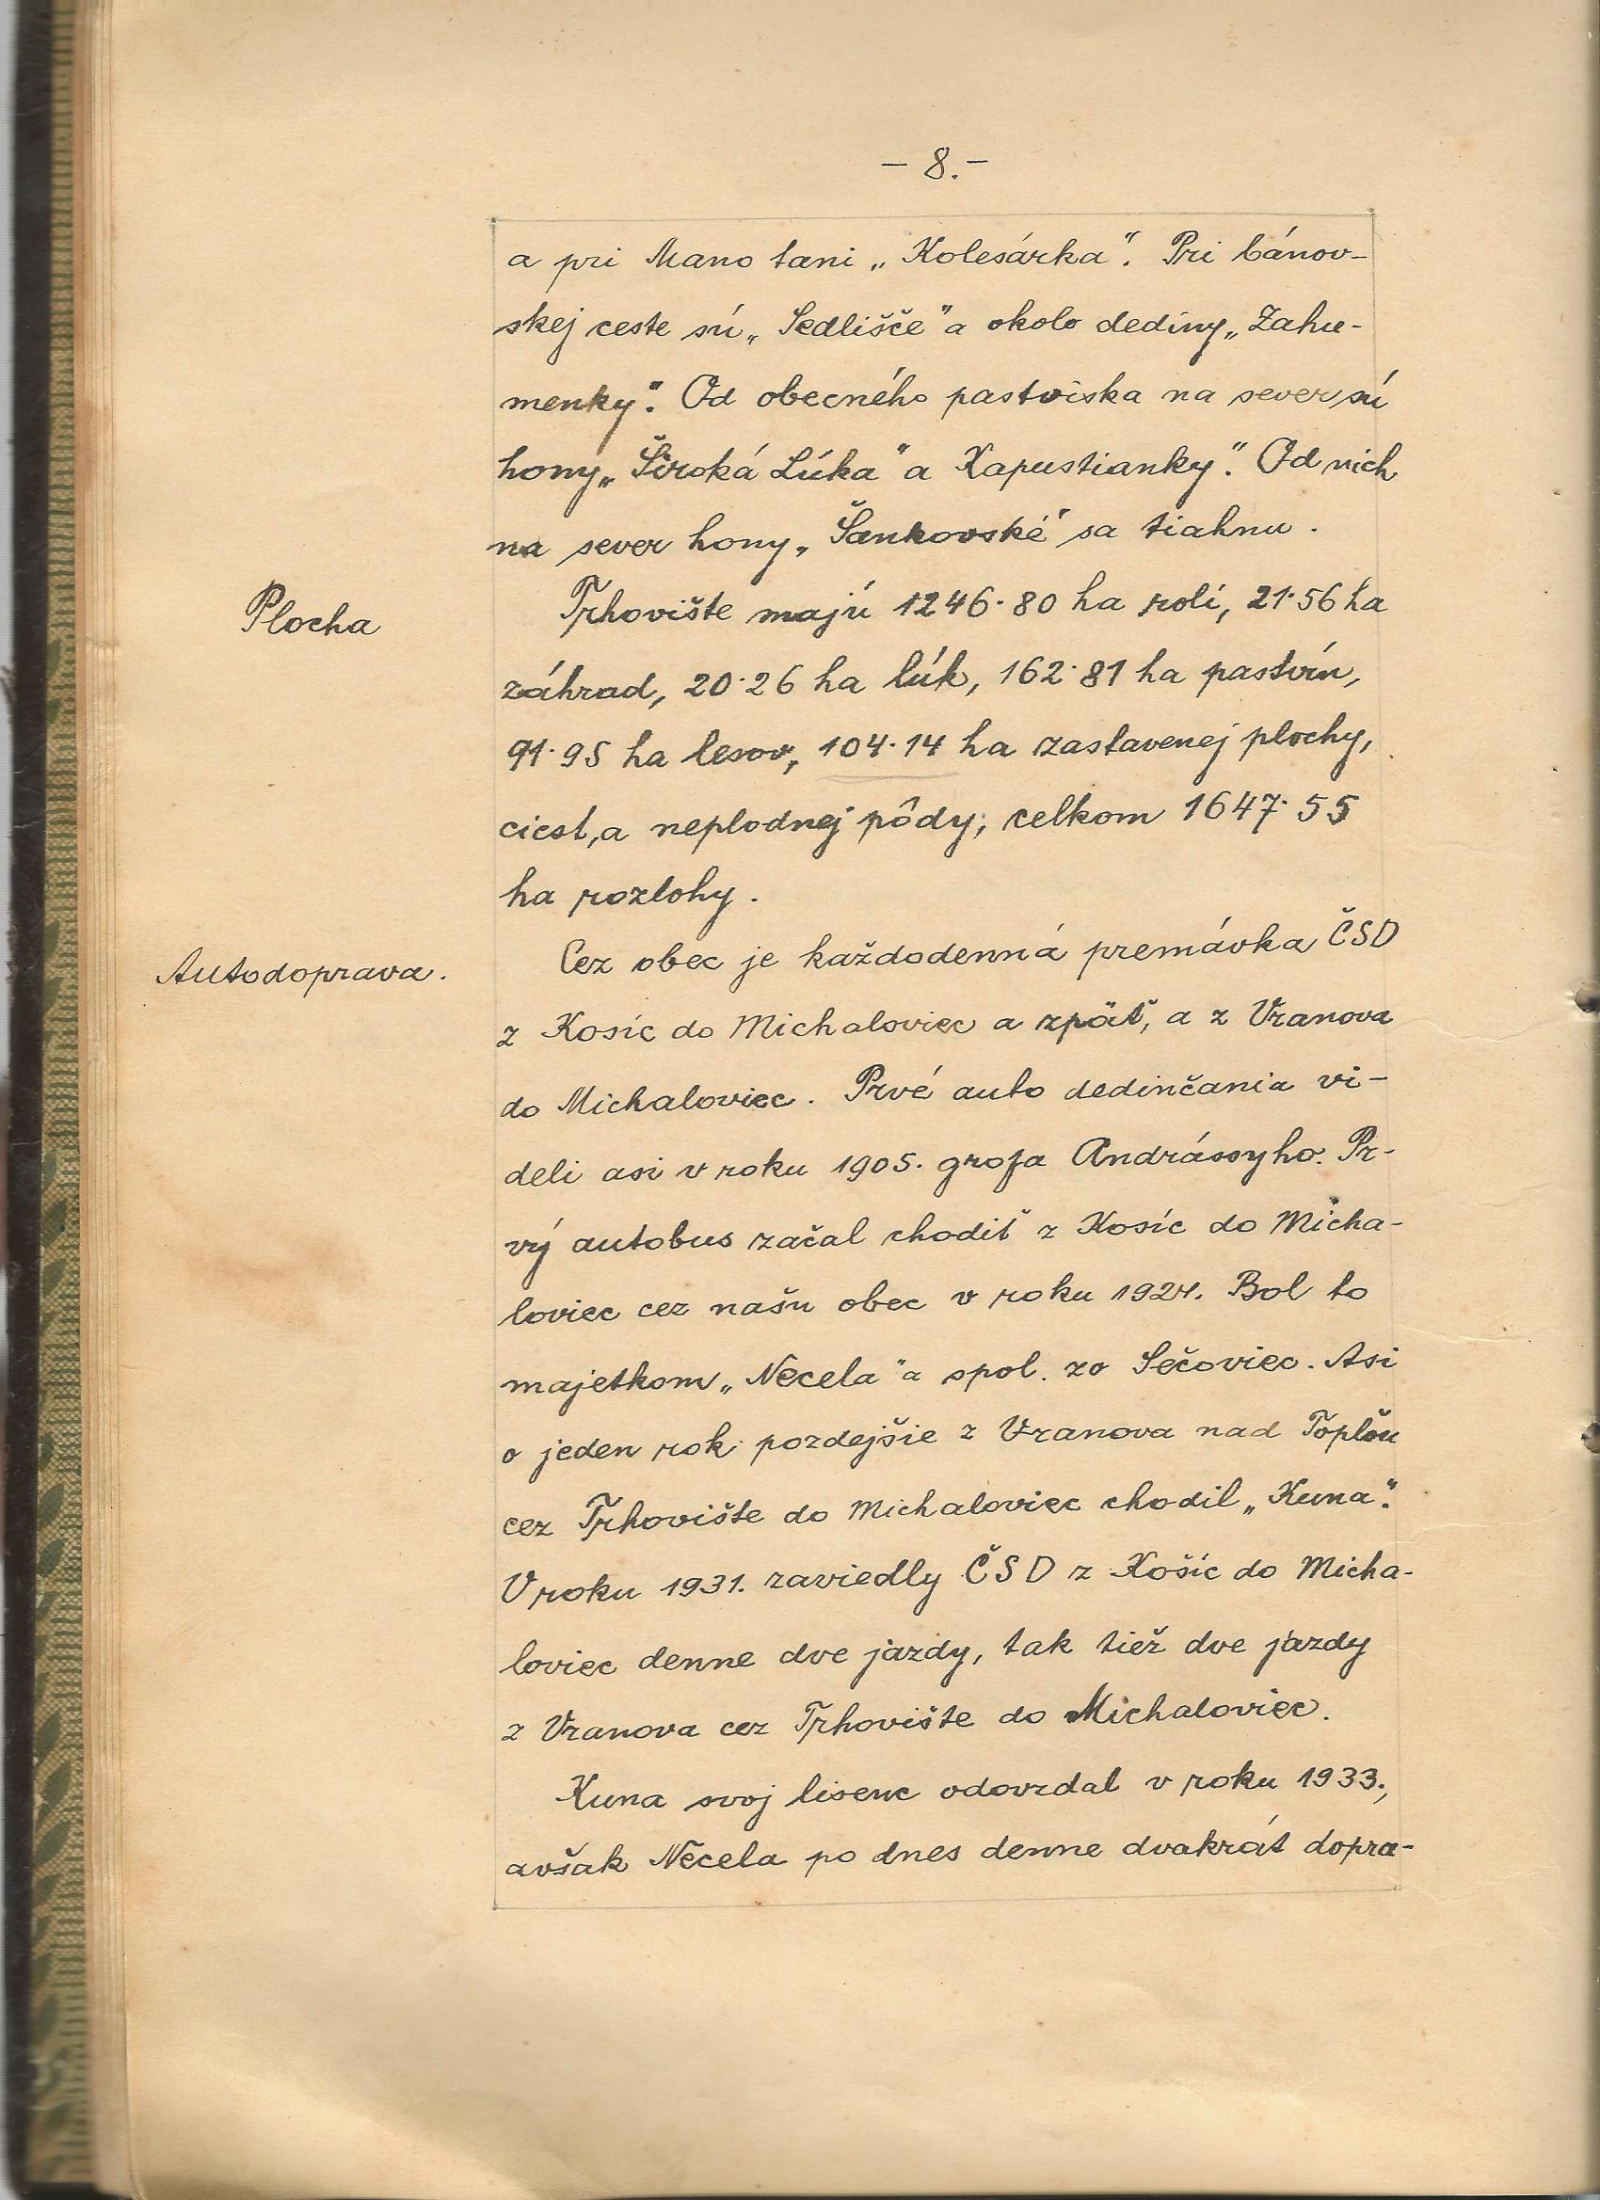 – 8. –
a pri Mano tani „Kolesárka“. Pri bánov-
skej ceste sú „Sedlišče“ a okolo dediny „Zahu-
menky“. Od obecného pastviska na sever sú
hony „Široká Lúka“ a Kapustianky“. Od nich
na sever hony „Šankovské“ sa tiahnu.
Plocha
Trhovište majú 1246·80 ha rolí, 21·56 ha
záhrad, 20·26 ha lúk, 162·81 ha pastvín,
91·95 ha lesov, 104·14 ha zastavenej plochy,
ciest, a neplodnej pôdy, celkom 1647·55
ha rozlohy.
Autodoprava.
Cez obec je každodenná premávka ČSD
z Kosíc do Michaloviec a zpäť, a z Vranova
do Michaloviec. Prvé auto dedinčania vi-
deli asi v roku 1905. grofa Andrássyho. Pr-
vý autobus začal chodiť z Kosíc do Micha-
loviec cez našu obec v roku 1924. Bol to
majetkom „Necela“ a spol. zo Sečoviec. Asi
o jeden rok pozdejšie z Vranova nad Topľou
cez Trhovište do Michaloviec chodil „Kuna“.
V roku 1931. zaviedly ČSD z Košíc do Micha-
loviec denne dve jazdy, tak tiež dve jazdy
z Vranova cez Trhovište do Michaloviec.
Kuna svoj lisenc odovzdal v roku 1933.,
avšak Necela po dnes denne dvakrát dopra-